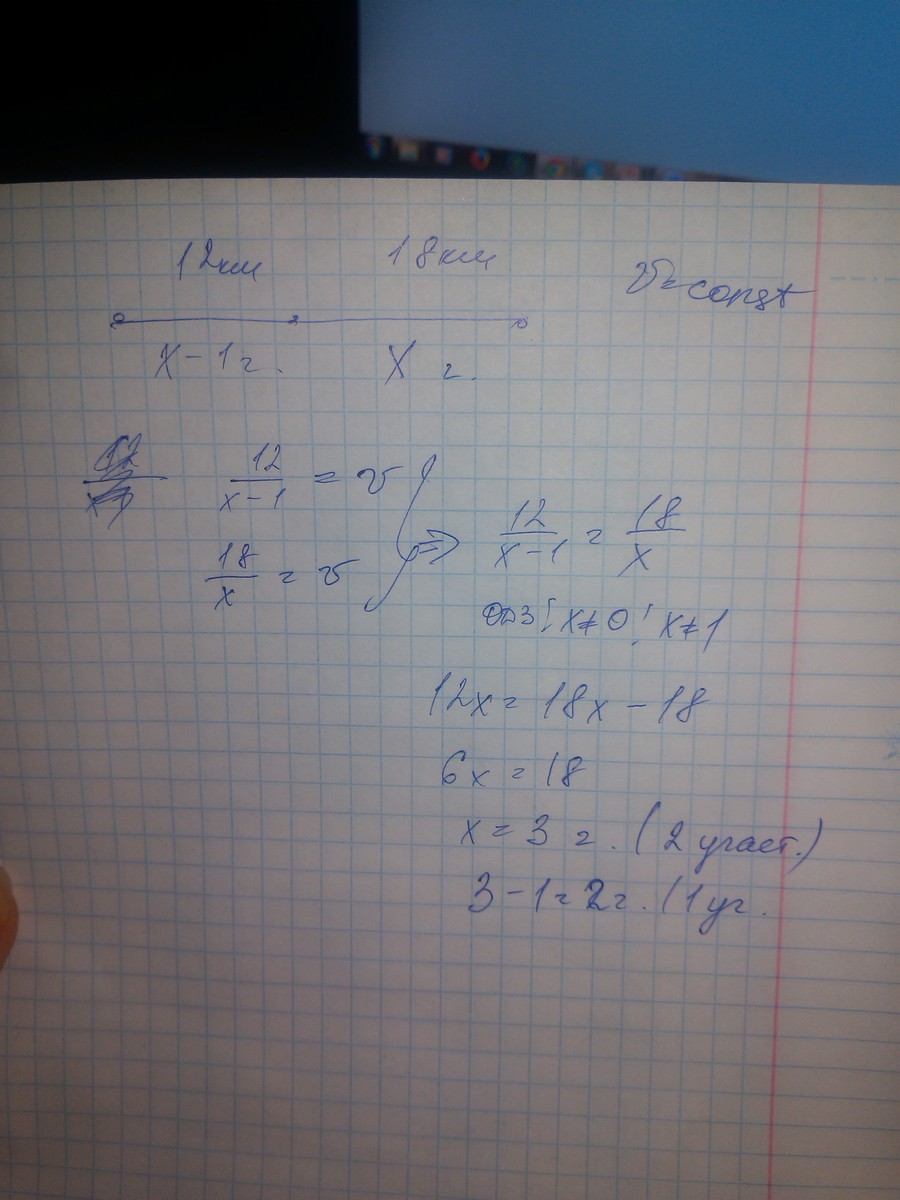 12км 18км
V=const
x-1ч. x ч.
12/(x-1) = v
18/x = v
=> 12/(x-1) = 18/x
ОДЗ: x≠0; x≠1
12x = 18x - 18
6x = 18
x = 3 ч. (2 участ.)
3-1=2ч. (1 уч.